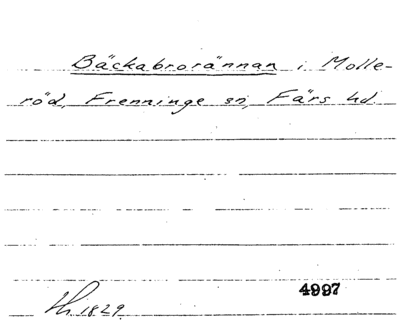 Bäckabrorännan i Molle-
röd, Frenninge sn, Färs hd.
4997
Th 1829